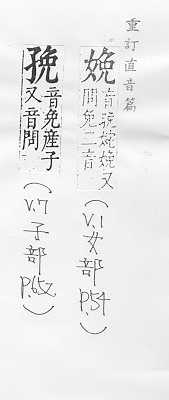 重訂直音篇
娩
音晚婉娩又
問免二音
(V.1 女部 P.54)
㝃
音免產子
又音問
(V.7 子部 P.652)